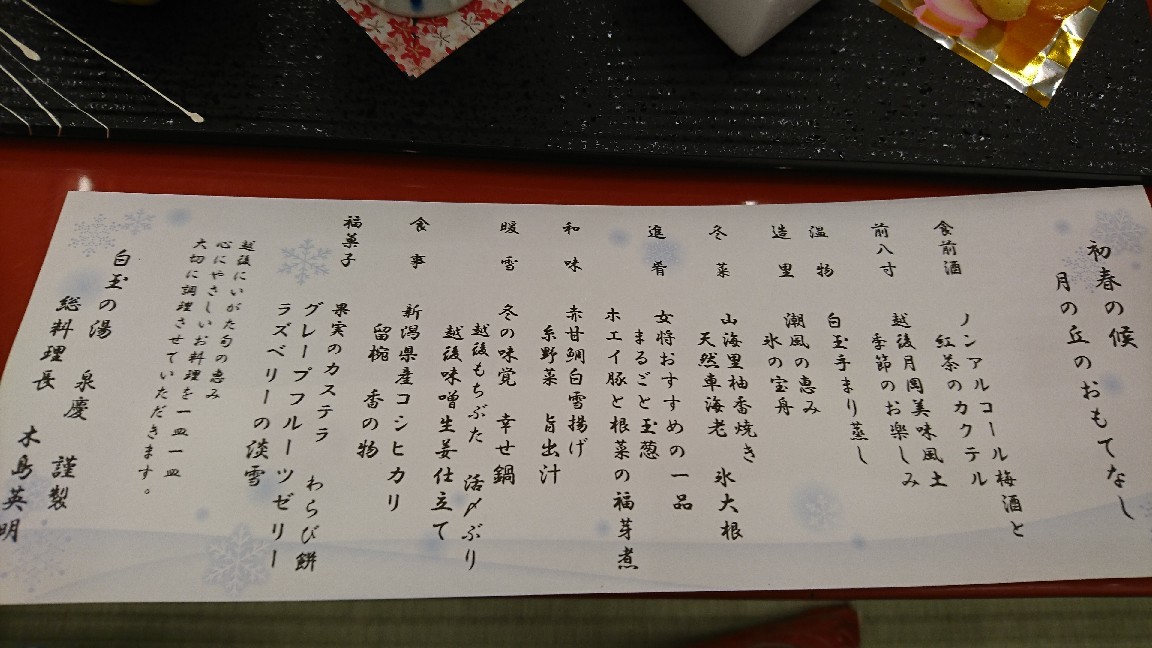 初春の候
月の丘のおもてなし
食前酒
ノンアルコール梅酒と
紅茶のカクテル
前八寸
越後月岡美味風土
季節のお楽しみ
温物
白玉手まり蒸し
造里
潮風の恵み
氷の宝舟
冬菜
山海里柚香焼き
天然車海老 氷大根
進肴
女将おすすめの一品
まるごと玉葱
ホエイ豚と根菜の福芽煮
和味
赤甘鯛白雪揚げ
糸野菜 旨出汁
暖雪
冬の味覚 幸せ鍋
越後もちぶた 活〆ぶり
越後味噌生姜仕立て
食事
新潟県産コシヒカリ
留椀 香の物
福菓子
果実のカステラ わらび餅
グレープフルーツゼリー
ラズベリーの淡雪
越後にいがた旬の恵み
心にやさしいお料理を一皿一皿
大切に調理させていただきます。
白玉の湯 泉慶 謹製
総料理長 木島英明